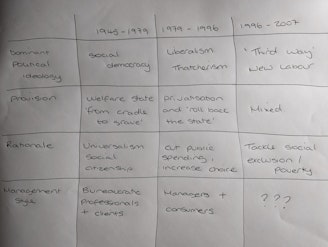 1945-1979 1979-1996 1996-2007
Dominant
Political
ideology
Social
democracy
Liberalism
Thatcherism
"Third way"
New Labour
Provision
Welfare state
'from cradle
to grave'
Privatisation
and 'roll back
the state'
Mixed
Rationale
Universalism
social
citizenship
cut public
spending,
increase choice
Tackle social
exclusion /
poverty
Management
Style
Bureaucrats
professionals
+ clients
Managers +
consumers
???